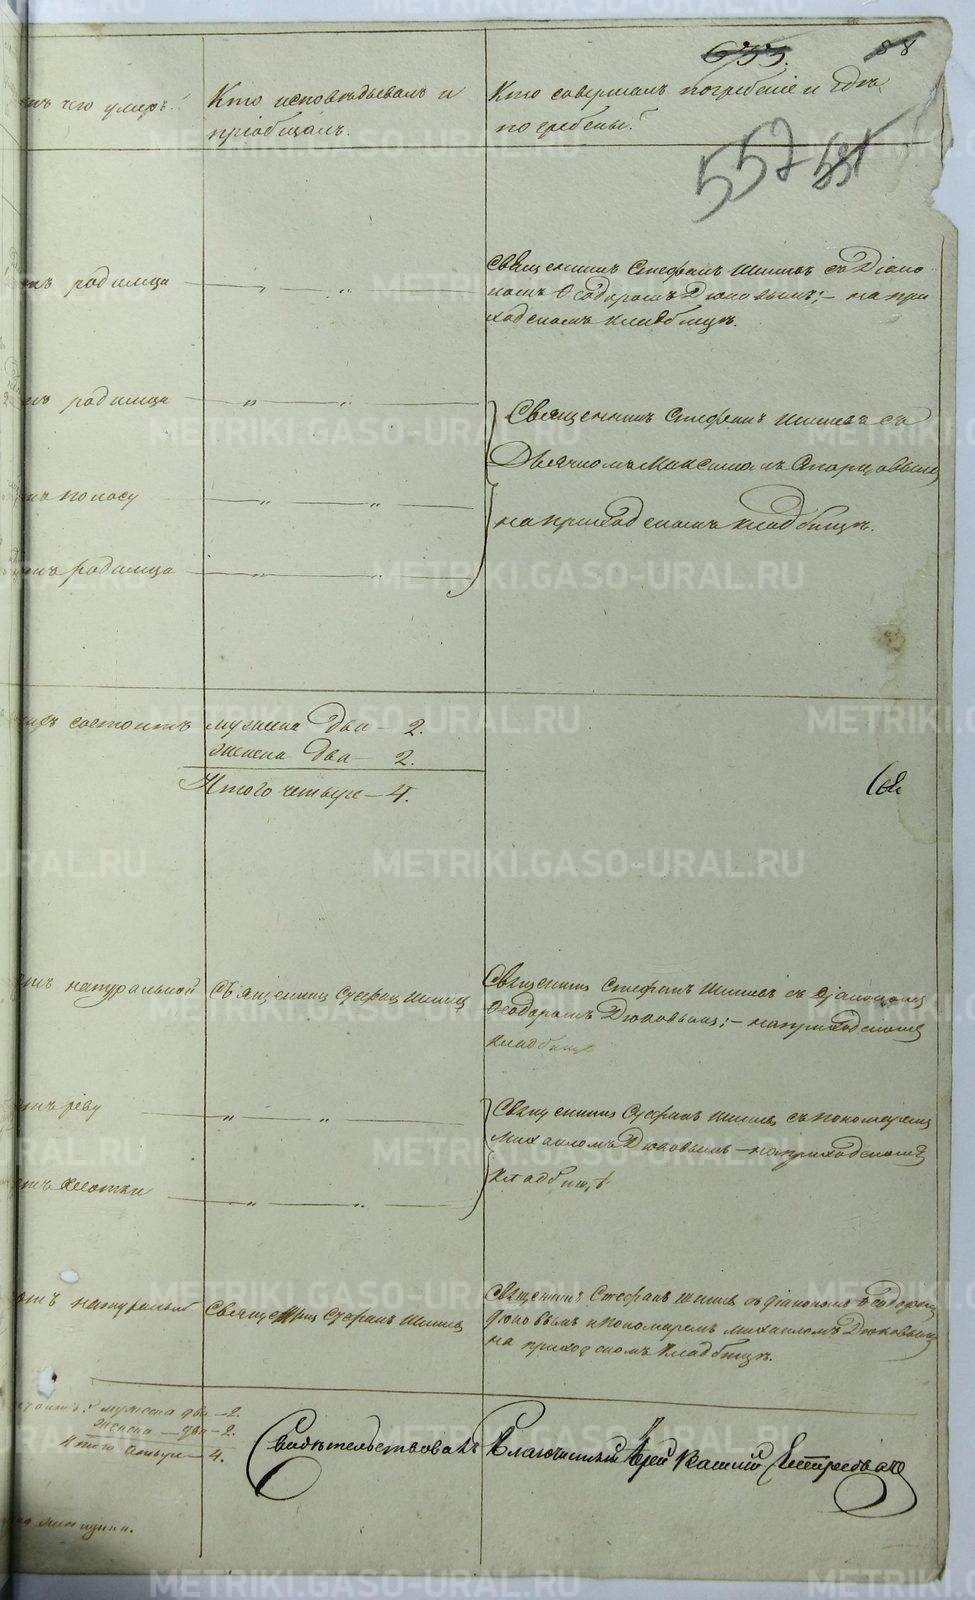 653. 88
отъ чего умеръ? Кто исповѣдывалъ и Кто совершалъ погребеніе и гдѣ
пріобщалъ. погребены?
557 531
родимца Священникъ Стефанъ Шишевъ съ Діако
номъ Ѳеодоромъ Дюковымъ; – на при
ходскомъ кладбищѣ.
родимца Священникъ Стефанъ Шишевъ съ
Дьячкомъ Максимомъ
поносу на приходскомъ кладбищѣ.
родимца
состоитъ мужеска два – 2.
женска два – 2.
Итого четыре – 4.
натуральной Священникъ Стефанъ Шишевъ Священникъ Стефанъ Шишевъ съ діакономъ
Ѳеодоромъ Дюковымъ; – на приходскомъ
кладбищѣ
Священникъ Стефанъ Шишевъ съ пономаремъ
Михаиломъ Дюковымъ – на приходскомъ
кладбищѣ
отъ натуральной Священникъ Стефанъ Шишевъ Священникъ Стефанъ Шишевъ съ діакономъ Ѳеодоромъ
Дюковымъ и пономаремъ Михаиломъ Дюковымъ
на приходскомъ кладбищѣ.
мужеска два – 2.
женска – два – 2.
Итого четыре – 4.
Свидѣтельствовалъ Благочинный Іерей Василій
METRIKI.GASO-URAL.RU